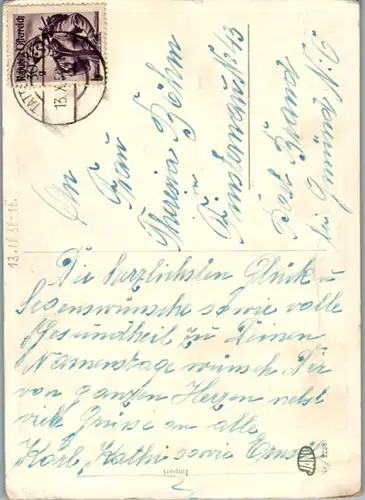 Republik Österreich
An
Frau
Theresia Böhm
Kindermann Nr 43
Post
Die herzlichsten Glück u
Segenswünsche sowie volle
Gesundheit zu Deinen
Namenstage wünsch Dir
von ganzen Herzen nebst
viele Grüsse an alle
Karl, Kathi sowie Ernstl
Import